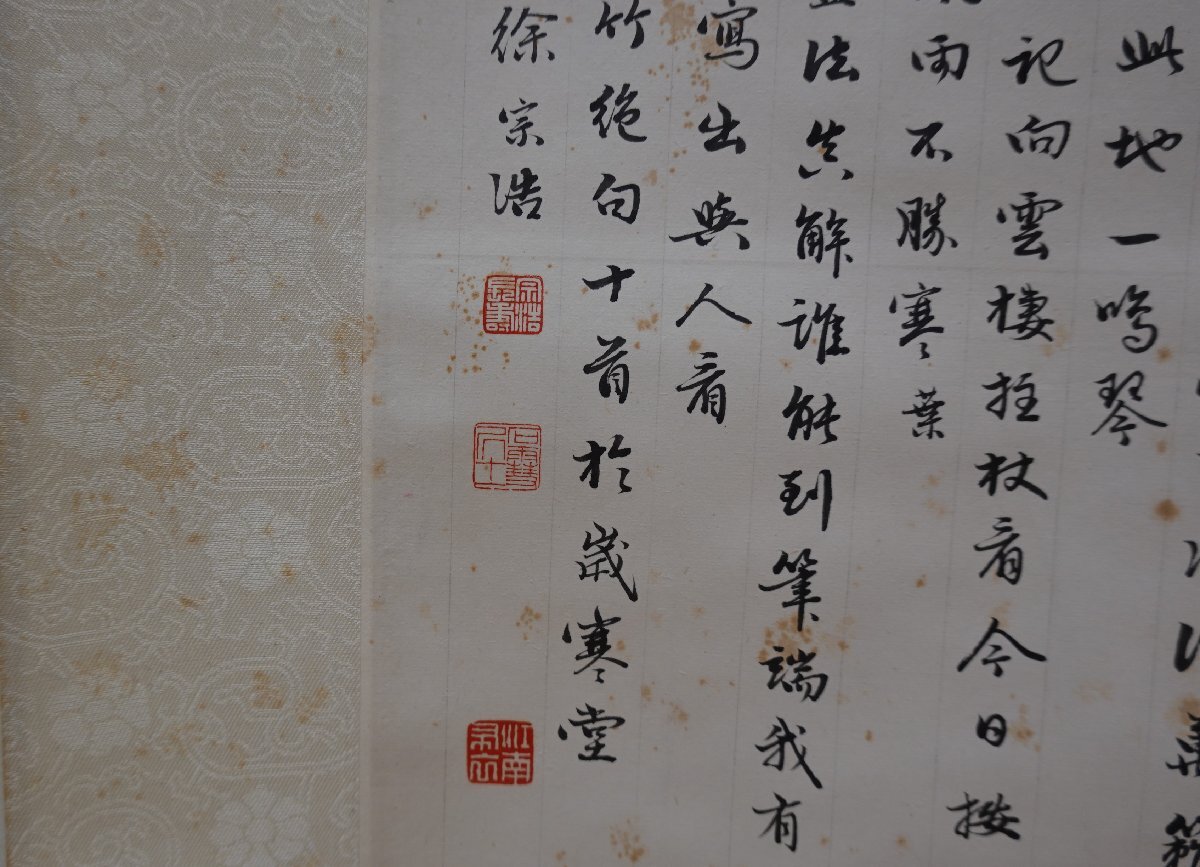 此地一鳴琴
記向雲棲拄杖看今日按
雨不勝寒葉
法真解誰能到筆端我有
寫出與人看
竹絕句十首於歲寒堂
徐宗浩
宗浩長壽
江南